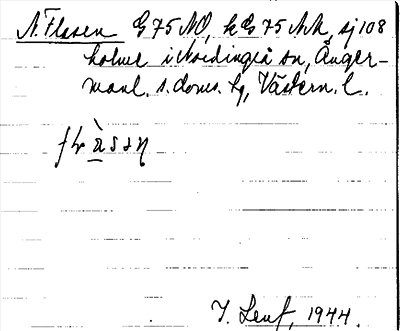 N. Flasen G 75 NO, k G 75 AA, sj 108
holme i Nordingrå sn, Ånger-
manl. s. doms. tg, Västern. l.
I. Lenf, 1944.